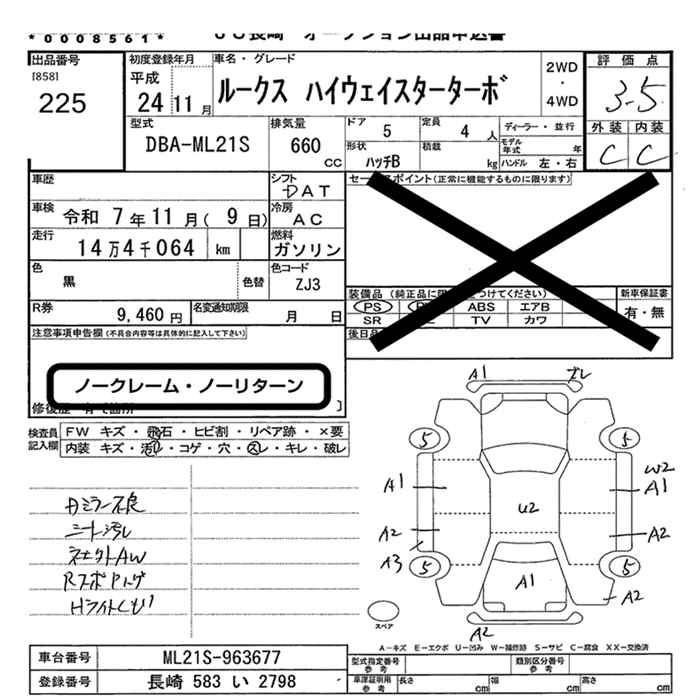 *0008561*
出品番号
[858]
225
初度登録年月
平成
24 11月
車名・グレード
ルークス ハイウェイスターターボ
2WD
・
4WD
評価点
3.5
外装 内装
C C
型式
DBA-ML21S
排気量
660
CC
ドア
5
定員
4 人
ディーラー・並行
形状
ハッチB
積載
kg
モデル年式 年
ハンドル 左・右
車歴
シフト
DAT
車検 令和 7年11月( 9日)
冷房
AC
走行
14万4千064 km
燃料
ガソリン
色
黒
色替
色コード
ZJ3
R券
9,460 円
名変通知期限
月 日
セールスポイント(正常に機能するものに限ります)
装備品
PS ABS エアB
SR TV カワ
新車保証書
有・無
後日品
注意事項申告欄(不具合内容等は具体的に記入して下さい)
ノークレーム・ノーリターン
検査員
記入欄
FW キズ・飛石・ヒビ割・リペア跡・×要
内装 キズ・汚レ・コゲ・穴・スレ・キレ・破レ
シート汚レ
A1
5 5
A1
W2
A1
U2
A2
A2
A3
5 5
A1
A2
A2
スペア
A-キズ E-エクボ U-凹み W-補修跡 S-サビ C-腐食 XX-交換済
車台番号
ML21S-963677
登録番号
長崎 583 い 2798
型式指定番号
参考
類別区分番号
参考
車庫証明用
参考
長さ cm 幅 cm 高さ cm